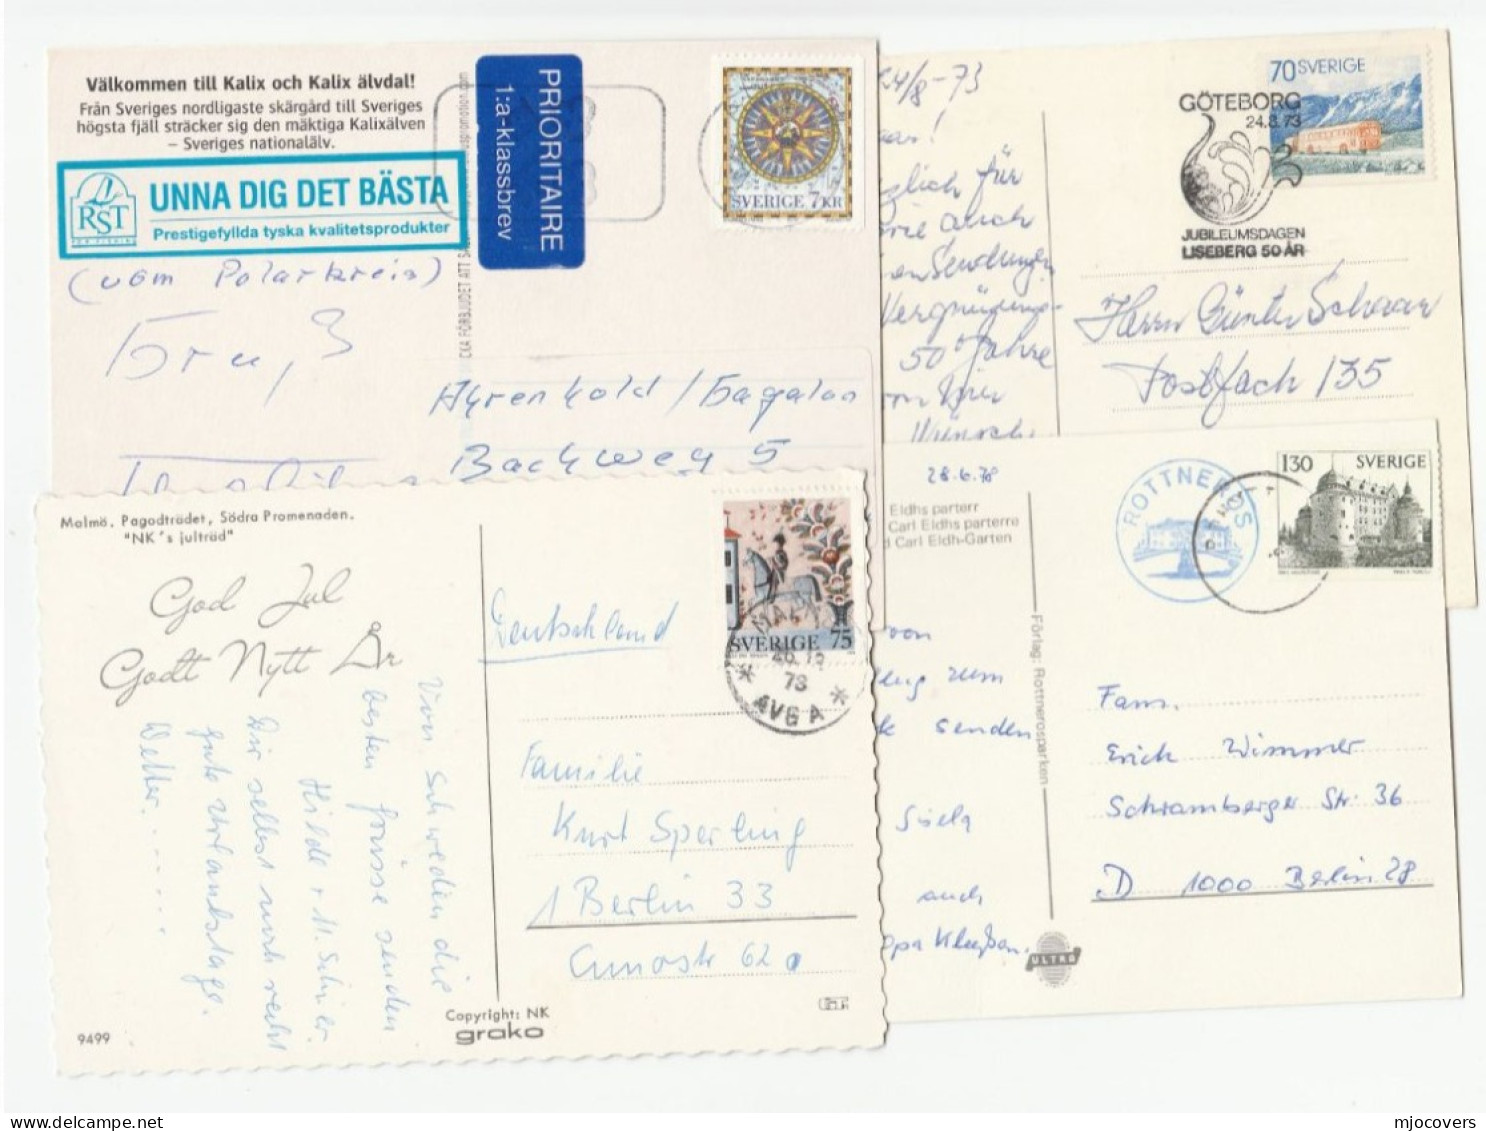 Välkommen till Kalix och Kalix älvdal!
Från Sveriges nordligaste skärgård till Sveriges
högsta fjäll sträcker sig den mäktiga Kalixälven
– Sveriges nationalälv.
RST
UNNA DIG DET BÄSTA
Prestigefyllda tyska kvalitetsprodukter
PRIORITAIRE
1:a-klassbrev
SVERIGE 7KR
(vom Polarkreis)
Bachweg 5
24/8-73
70 SVERIGE
GÖTEBORG
24.8.73
JUBILEUMSDAGEN
LISEBERG 50 ÅR
für
auch
Sendungen
Vergnügungs-
50 Jahre
Herrn Günter Schwarz
Postfach 135
Malmö. Pagodträdet, Södra Promenaden.
"NK's julträd"
God Jul
Godt Nytt År
Von Schweden die
besten Grüsse senden
Hilde + M. Schier.
Dir selbst noch recht
gute Urlaubstage.
Wetter........
Deutschland
SVERIGE 75
MALMÖ
73
AVG A
Familie
Kurt Sperling
1 Berlin 33
Cunostr 62a
9499
Copyright: NK
grako
28.6.78
Eldhs parterr
Carl Eldhs parterre
d Carl Eldh-Garten
ROTTNEROS
130 SVERIGE
Förlag: Rottnerosparken
von
zum
senden
Gisela
auch
Fam.
Erich Wimmer
Schramberger Str. 36
D 1000 Berlin 28
ULTRA
mjocovers